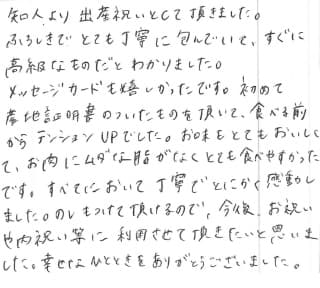 知人より出産祝いとして頂きました。
ふろしきでとても丁寧に包んでいて、すぐに
高級なものだとわかりました。
メッセージカードも嬉しかったです。初めて
産地証明書のついたものを頂いて、食べる前
からテンションUPでした。お味もとてもおいしく
て、お肉にムダな脂がなくとても食べやすかった
です。すべてにおいて丁寧でとにかく感動し
ました。のしもつけて頂けるので、今後、お祝い
や内祝い等に利用させて頂きたいと思いま
した。幸せなひとときをありがとうございました。